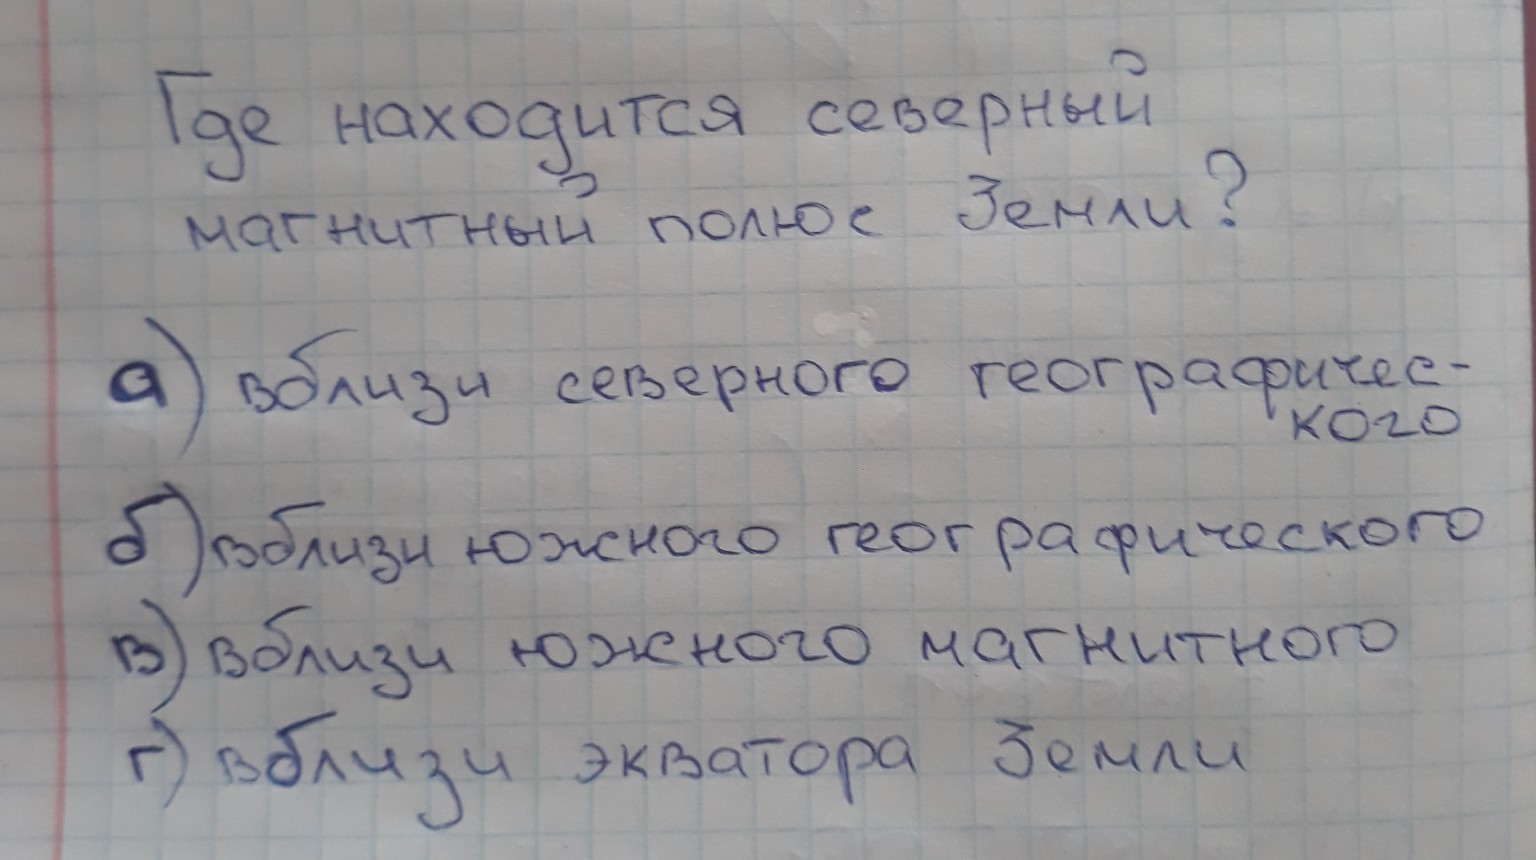 Где находится северный
магнитный полюс Земли?
а) вблизи северного географичес-
кого
б) вблизи южного географического
в) вблизи южного магнитного
г) вблизи экватора Земли